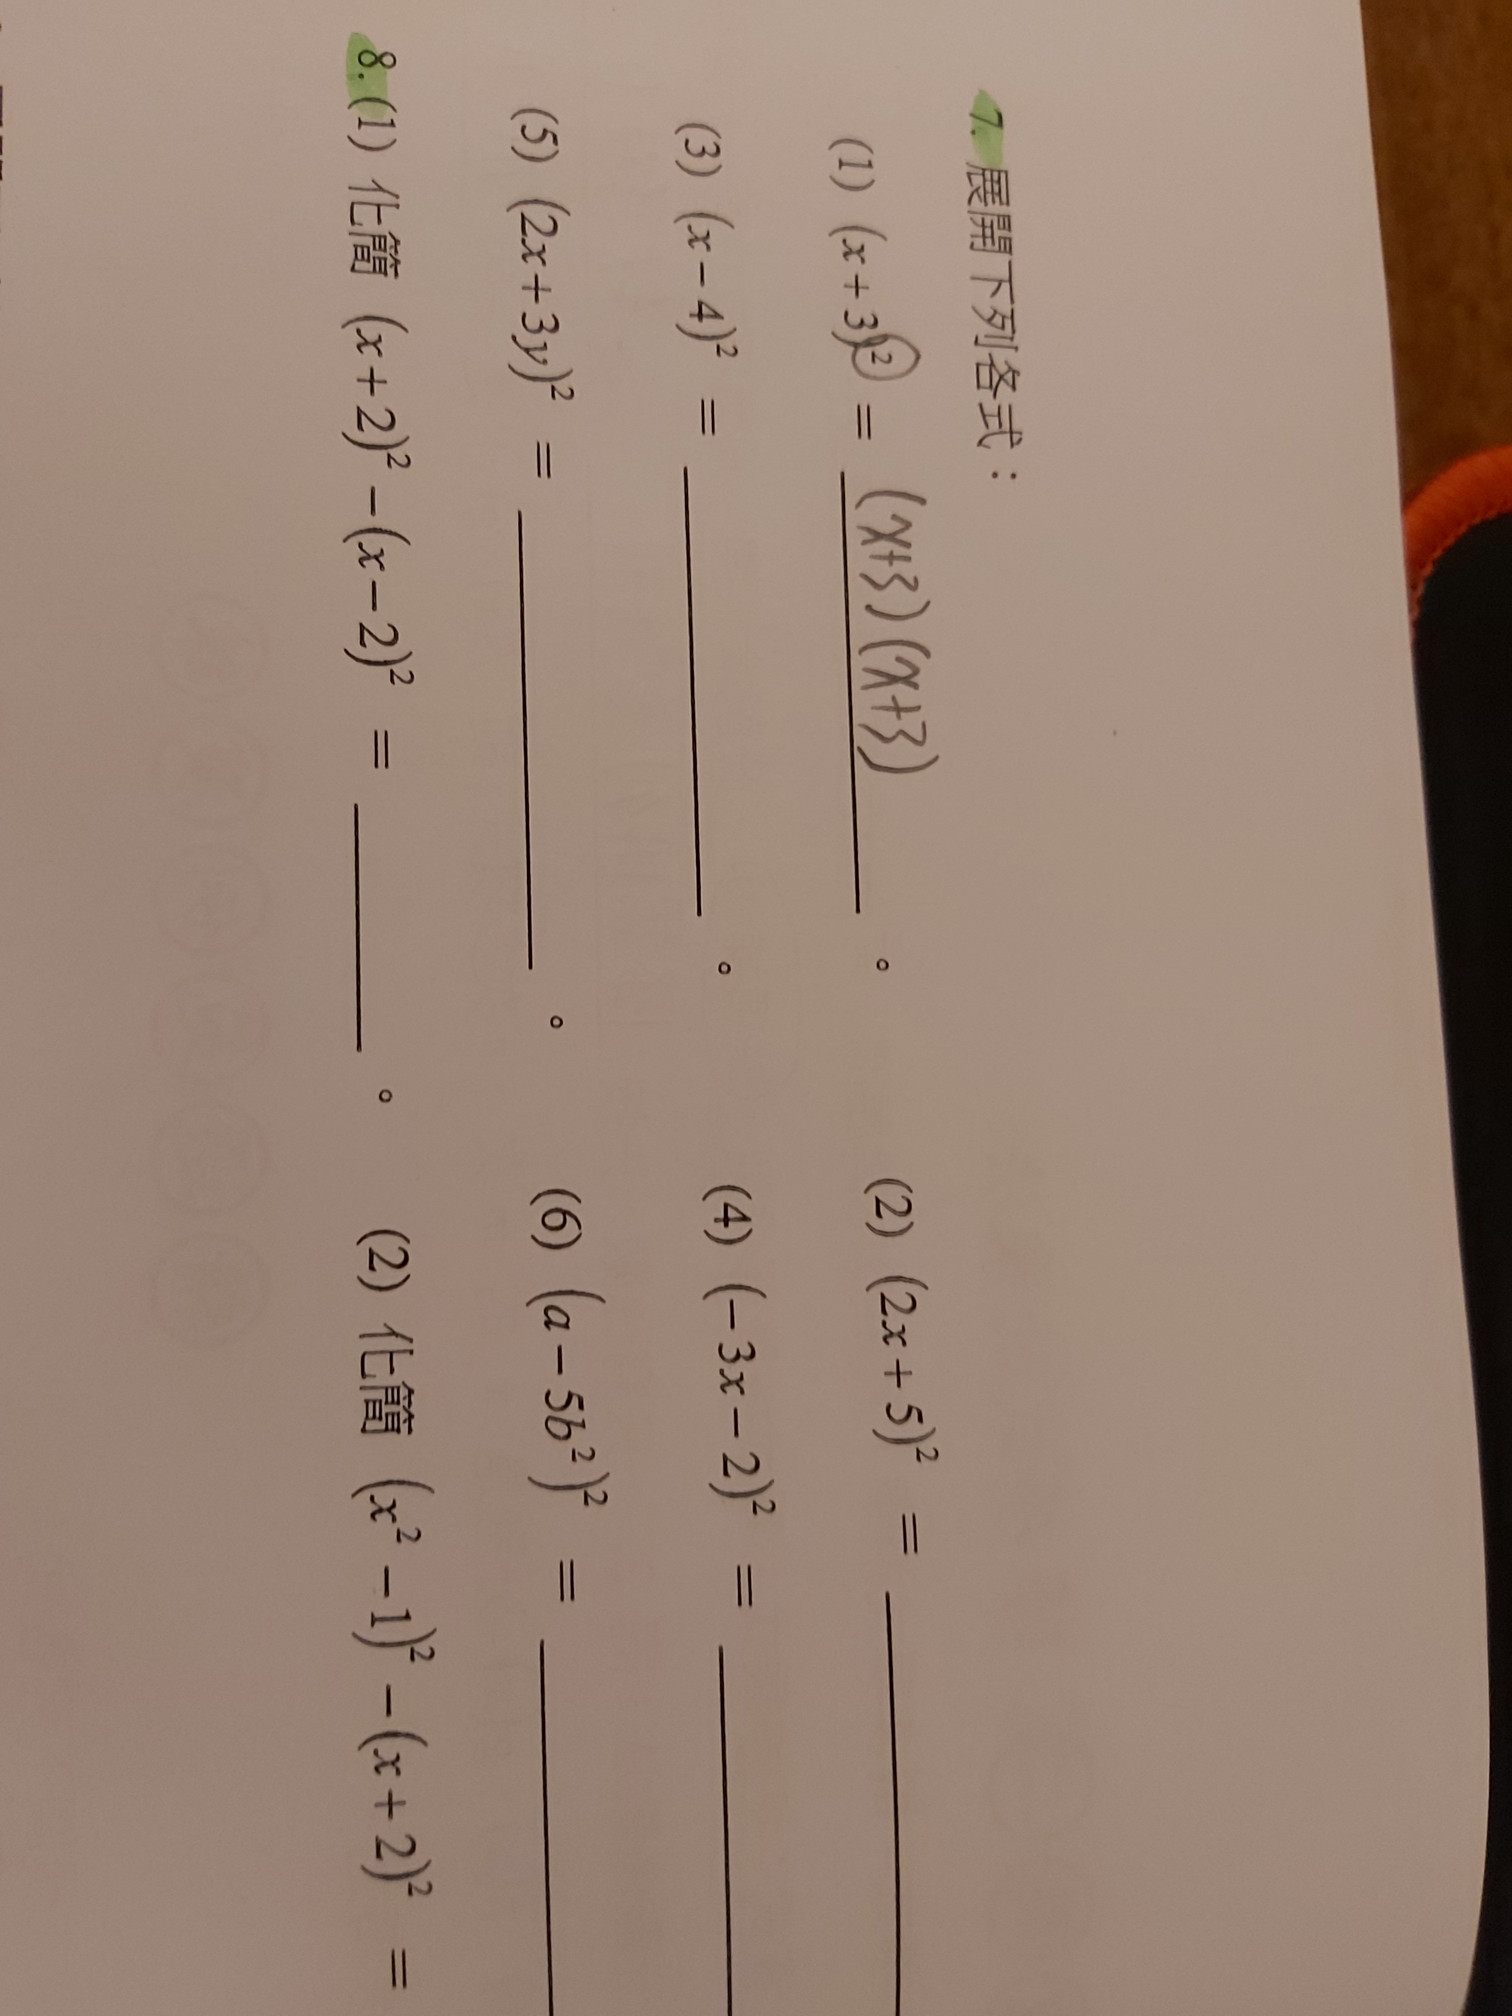 7. 展開下列各式：
(1) (x+3)² = (x+3)(x+3)。 (2) (2x+5)² =
(3) (x−4)² = 。 (4) (−3x−2)² =
(5) (2x+3y)² = 。 (6) (a−5b²)² =
8. (1) 化簡 (x+2)²−(x−2)² = 。 (2) 化簡 (x²−1)²−(x+2)² =